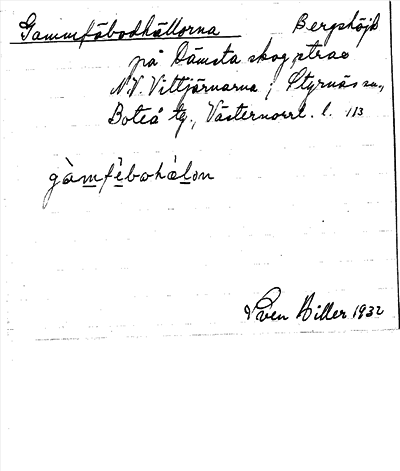 Gammfäbodhällorna Bergshöjd
på Dämsta skog, strax
N.V. Vittjärnarna; Styrnäs sn.,
Boteå tg., Västernorrl. l. 113
gàmfèbohàlon
Sven Hiller 1932